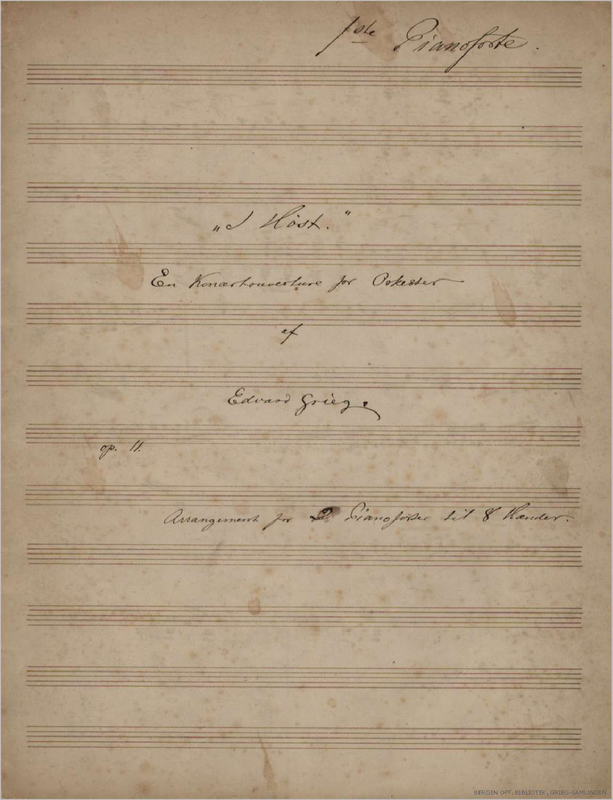 1ste Pianoforte.
„I Høst."
En Konsertouverture for Orkester
af
Edvard Grieg.
op. 11.
Arrangement for 2 Pianoforter til 8 Hænder.
BERGEN OFF. BIBLIOTEK, GRIEG-SAMLINGEN